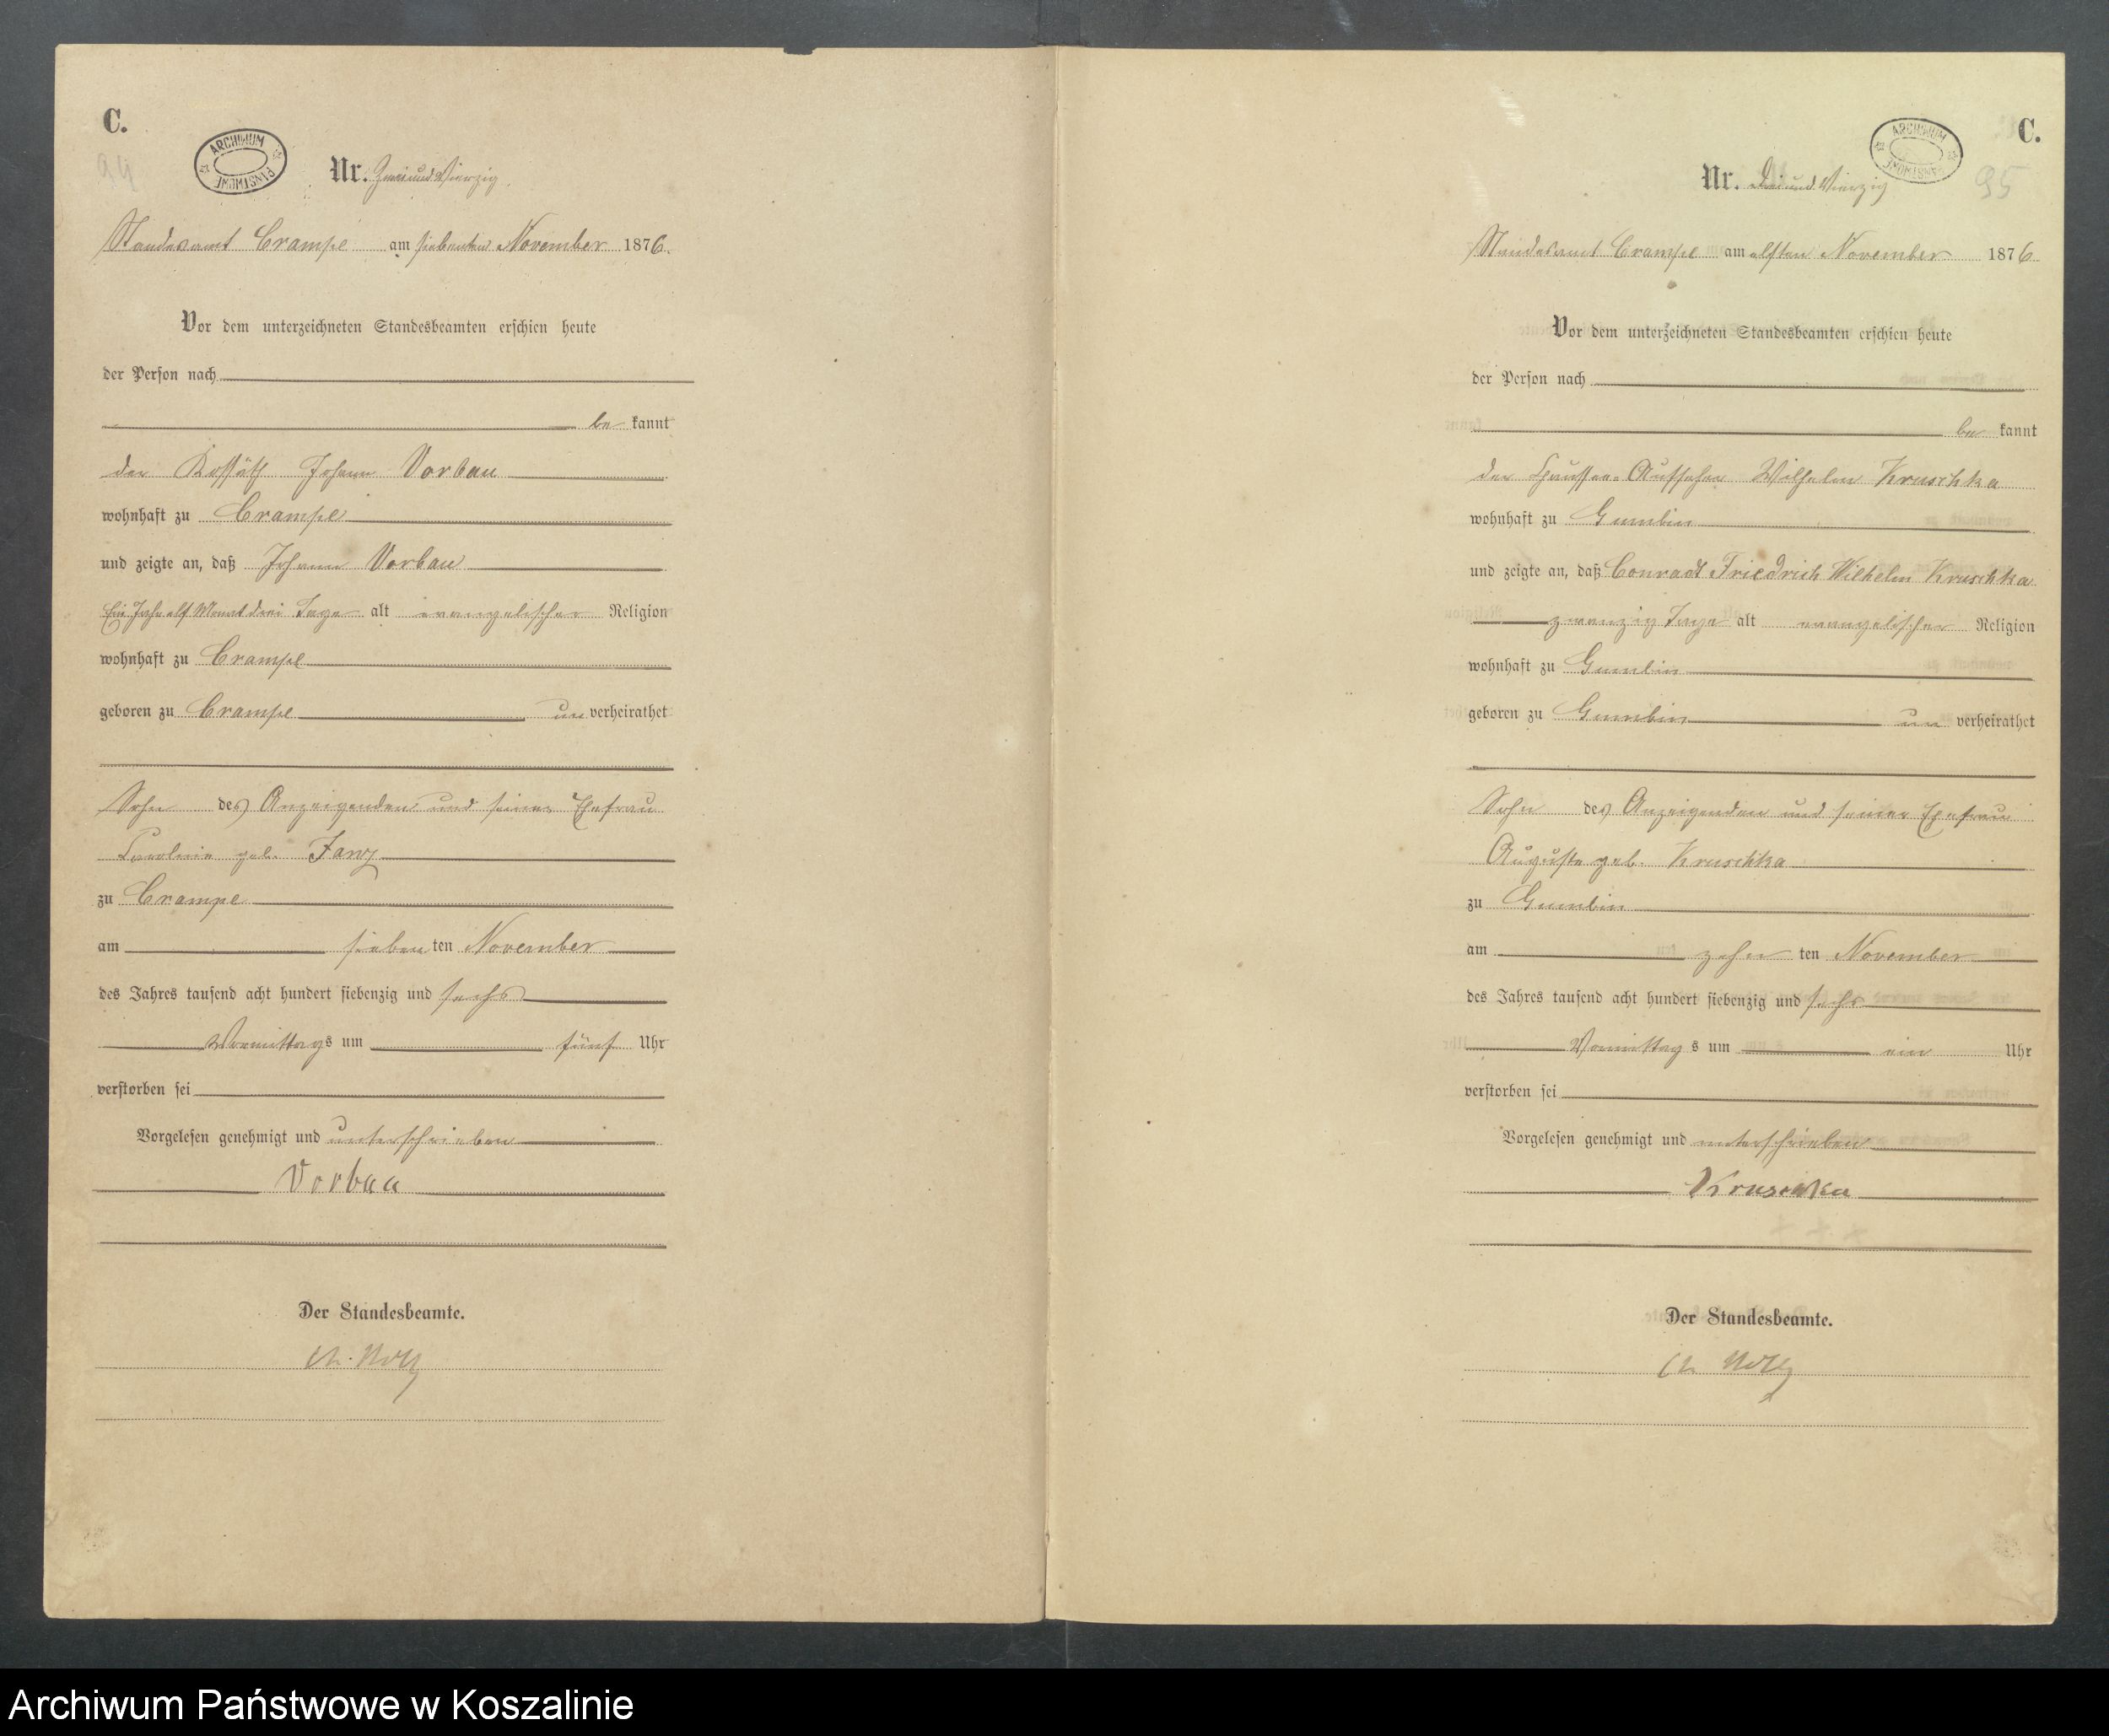 C.
94
ARCHIWUM PAŃSTWOWE
Nr. Zwei und Vierzig
Standesamt Crampe am siebenten November 1876.
Vor dem unterzeichneten Standesbeamten erschien heute
der Person nach
be kannt
der Kossäth Johann Vorbau
wohnhaft zu Crampe
und zeigte an, daß Johann Vorbau
Ein Jahr elf Monat drei Tage alt evangelischer Religion
wohnhaft zu Crampe
geboren zu Crampe un verheirathet
Sohn des Anzeigenden und seiner Ehefrau
Caroline geb.
zu Crampe
am sieben ten November
des Jahres tausend acht hundert siebenzig und sechs
Vormittags um fünf Uhr
verstorben sei
Vorgelesen genehmigt und unterschrieben
Vorbau
Der Standesbeamte.
C.
95
ARCHIWUM PAŃSTWOWE
Nr. Drei und Vierzig
Standesamt Crampe am elften November 1876
Vor dem unterzeichneten Standesbeamten erschien heute
der Person nach
be kannt
der Chaussee-Aufseher Wilhelm Kruschka
wohnhaft zu Gumbin
und zeigte an, daß Conradt Friedrich Wilhelm Kruschka
zwanzig Tage alt evangelischer Religion
wohnhaft zu Gumbin
geboren zu Gumbin un verheirathet
Sohn des Anzeigenden und seiner Ehefrau
Auguste geb. Kruschka
zu Gumbin
am zehn ten November
des Jahres tausend acht hundert siebenzig und sechs
Vormittag s um ein Uhr
verstorben sei
Vorgelesen genehmigt und unterschrieben
Kruschka
Der Standesbeamte.
Archiwum Państwowe w Koszalinie